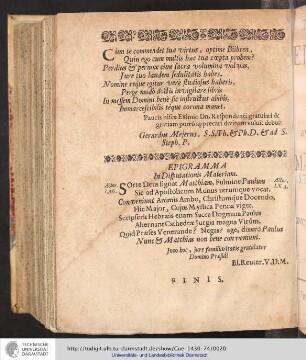 Cùm te commendet tua virtus, optime Bühren,
Quin ego cum multis huc tua cœpta probem?
Perdius & pernox cùm sacra volumina volvas,
Jure tuo laudem sedulitatis habes.
Nomine reque igitur verè Studiosus haberis,
Perge modò doctis invigilare libris
In messem Domini benè sic instructus abibis,
Immarcescibilis teque corona manet.
Paucis hisce Eximio Dn. Respondenti gratulari &
gratiam porrò apprecari divinam voluit, debuit
Gerardus Mejerus, S.S.Th. & Ph. D. & ad S.
Steph. P.
EPIGRAMMA
In Disputationis Materiam.
Sorte Deus signat Matthiam, Fulmine Paulum
Sic ad Apostolicum Munus utrumque vocat.
Conveniunt Animis Ambo, Christumque Docendo,
Hic Major, Cujus Mystica Penna viget.
Scripseris Hebræis etiam Sacra Dogmata Paulus
Alternant Cathedræ Jurgia magna Virûm.
Quid Præses Venerande? Negas? age, dixero Paulus
Nunc & Matthias non bene conveniunt.
Joco hoc, jure familiaritatis gratulatur
Domino Præsidi
El. Reuter. V.D.M.
FINIS.
TECHNISCHE
UNIVERSITÄT
DARMSTADT
http://tudigit.ulb.tu-darmstadt.de/show/Gue-1430-74/0020
Universitäts- und Landesbibliothek Darmstadt